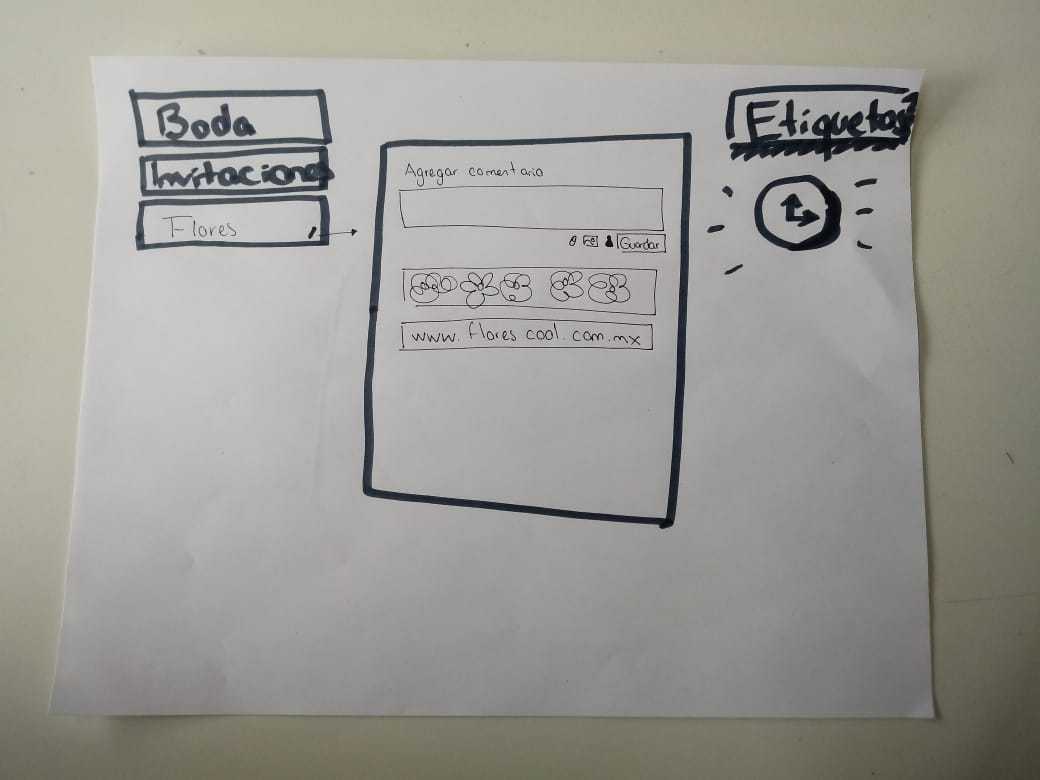 Boda
Invitaciones
Flores
Agregar comentario
Guardar
www.florescool.com.mx
Etiquetas